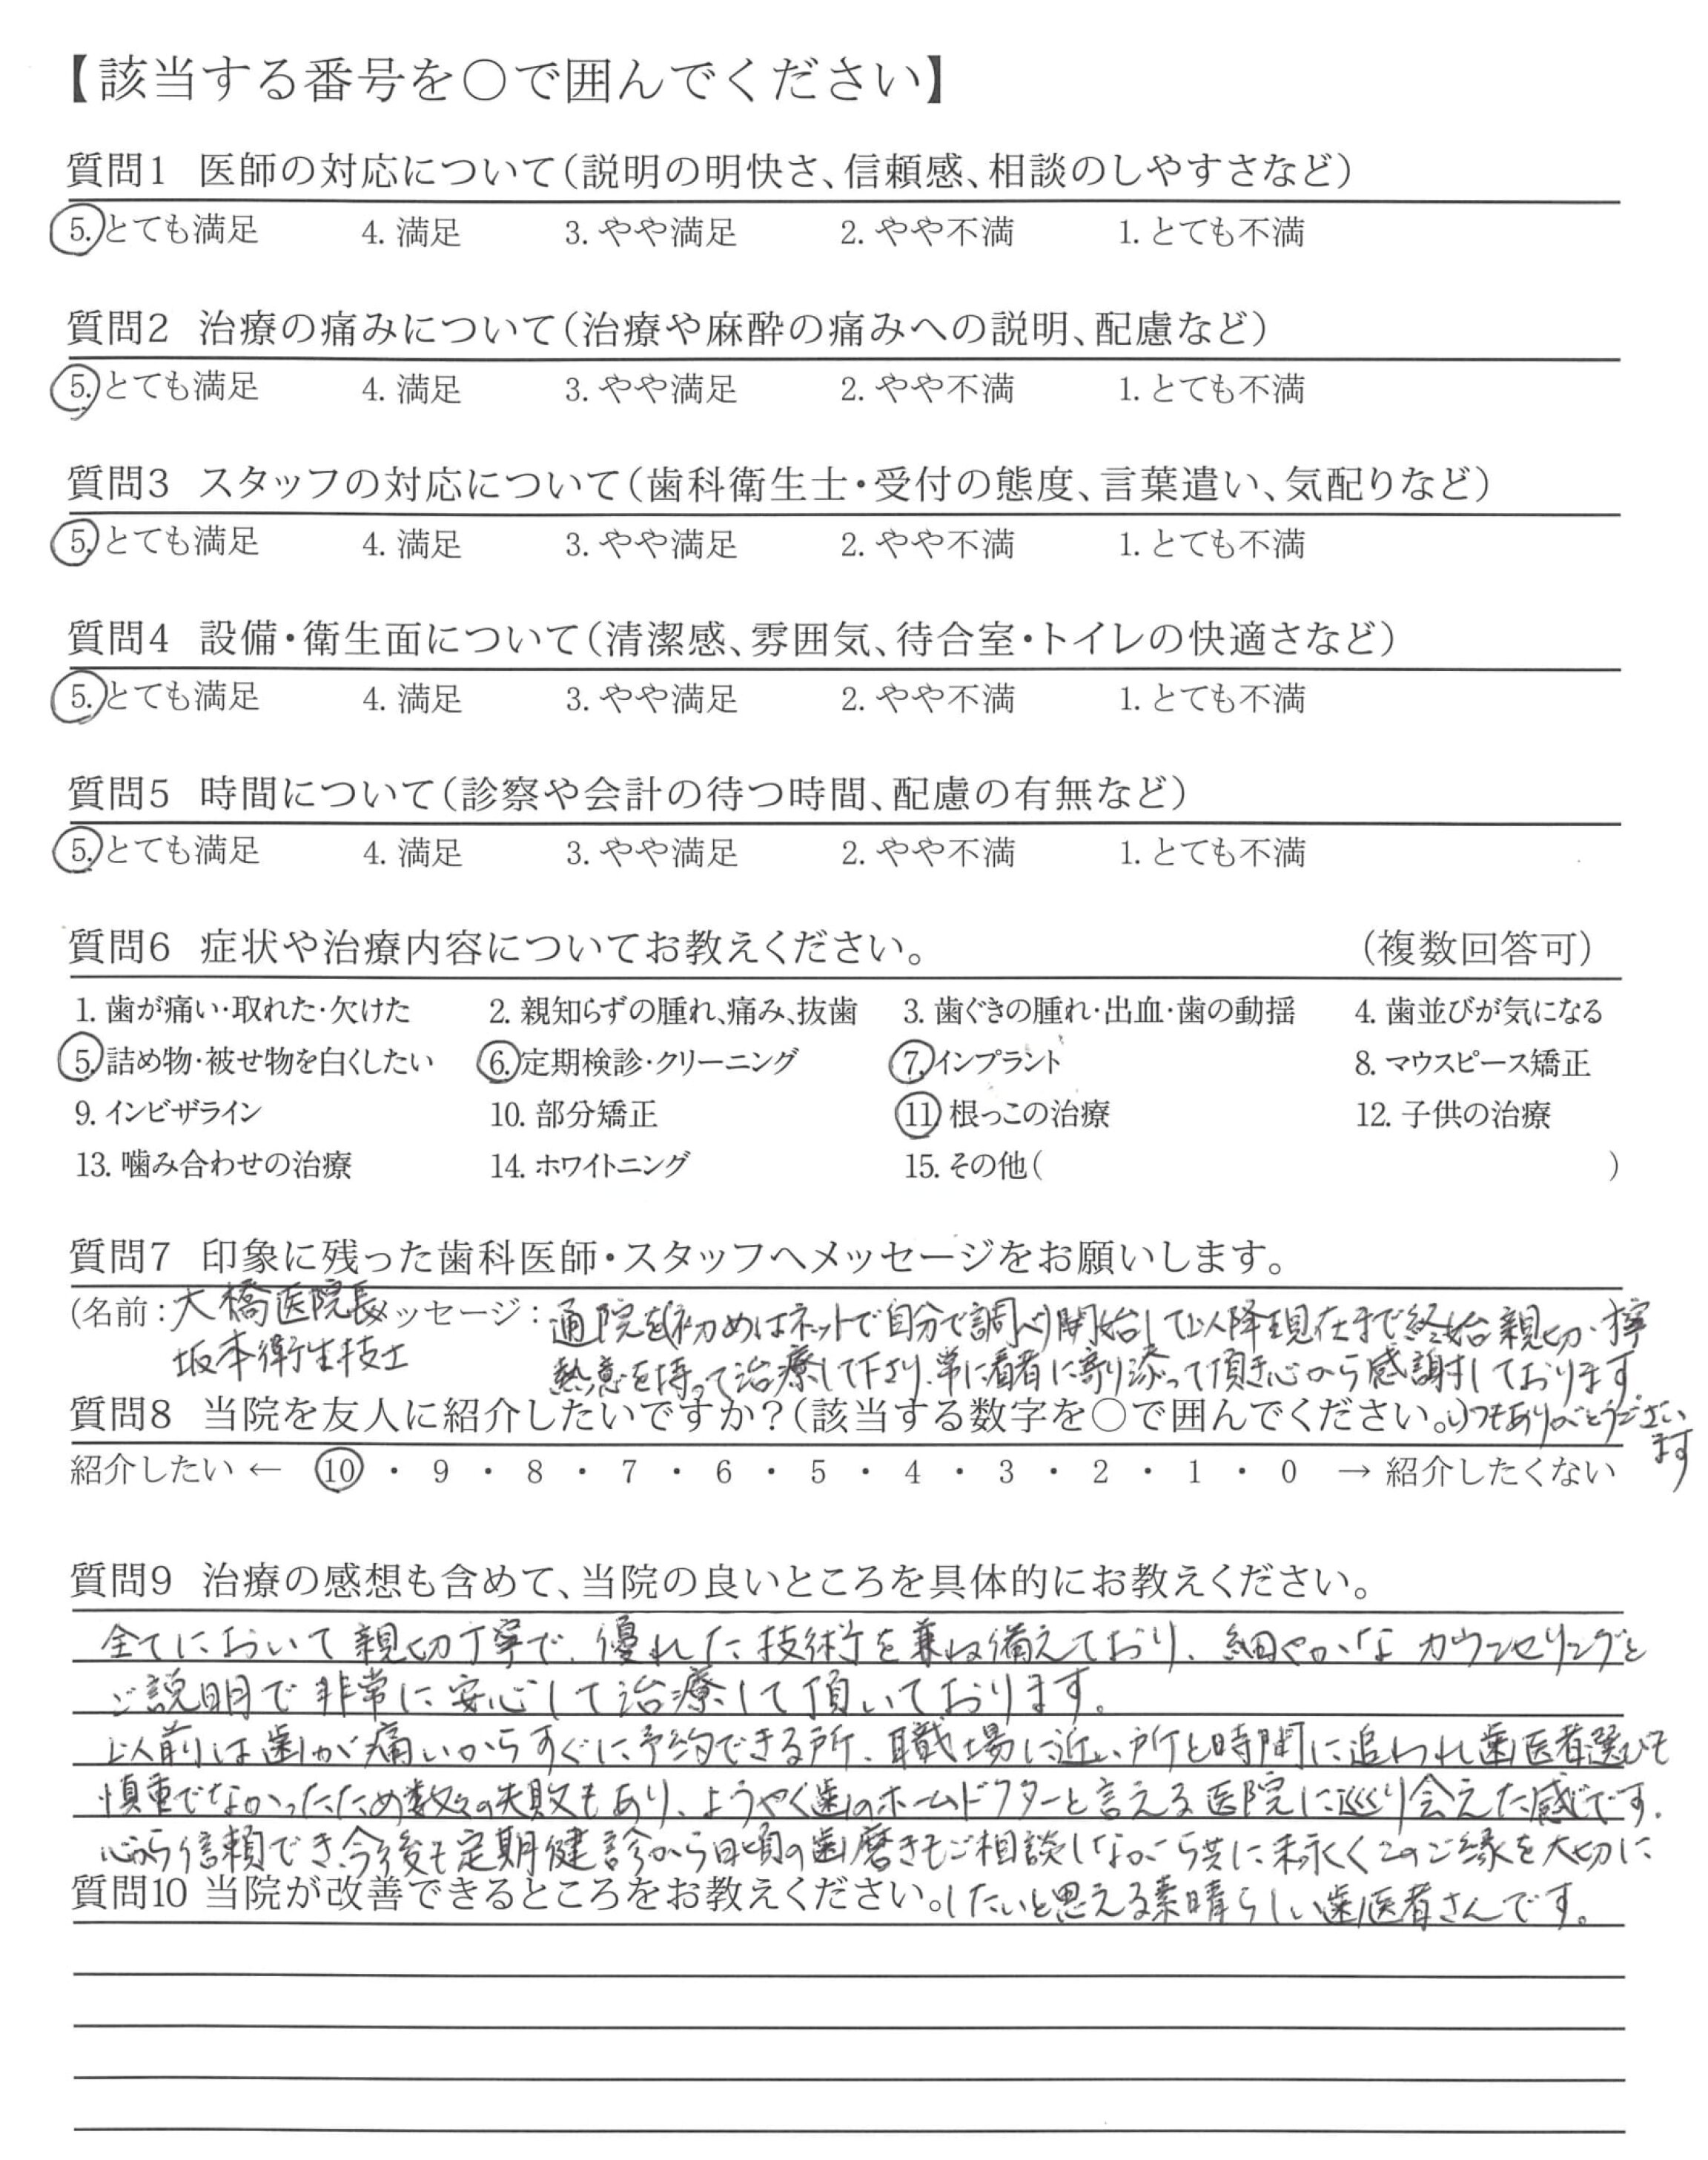 【該当する番号を〇で囲んでください】
質問1 医師の対応について(説明の明快さ、信頼感、相談のしやすさなど)
5. とても満足 4. 満足 3. やや満足 2. やや不満 1. とても不満
質問2 治療の痛みについて(治療や麻酔の痛みへの説明、配慮など)
5. とても満足 4. 満足 3. やや満足 2. やや不満 1. とても不満
質問3 スタッフの対応について(歯科衛生士・受付の態度、言葉遣い、気配りなど)
5. とても満足 4. 満足 3. やや満足 2. やや不満 1. とても不満
質問4 設備・衛生面について(清潔感、雰囲気、待合室・トイレの快適さなど)
5. とても満足 4. 満足 3. やや満足 2. やや不満 1. とても不満
質問5 時間について(診察や会計の待つ時間、配慮の有無など)
5. とても満足 4. 満足 3. やや満足 2. やや不満 1. とても不満
質問6 症状や治療内容についてお教えください。 (複数回答可)
1. 歯が痛い・取れた・欠けた 2. 親知らずの腫れ、痛み、抜歯 3. 歯ぐきの腫れ・出血・歯の動揺 4. 歯並びが気になる
5. 詰め物・被せ物を白くしたい 6. 定期検診・クリーニング 7. インプラント 8. マウスピース矯正
9. インビザライン 10. 部分矯正 11. 根っこの治療 12. 子供の治療
13. 噛み合わせの治療 14. ホワイトニング 15. その他( )
質問7 印象に残った歯科医師・スタッフへメッセージをお願いします。
(名前：大橋医院長 メッセージ：通院を(初めはネットで自分で調べ)開始して以降現在まで終始親切・
坂本衛生技士 熱意を持って治療して下さり、常に患者に寄り添って頂き心から感謝しております。
質問8 当院を友人に紹介したいですか？(該当する数字を〇で囲んでください。いつもありがとうござい
ます
紹介したい ← 10 ・ 9 ・ 8 ・ 7 ・ 6 ・ 5 ・ 4 ・ 3 ・ 2 ・ 1 ・ 0 → 紹介したくない
質問9 治療の感想も含めて、当院の良いところを具体的にお教えください。
全てにおいて親切丁寧で、優れた技術を兼ね備えており、細やかなカウンセリングと
ご説明で非常に安心して治療して頂いております。
以前は歯が痛いからすぐに予約できる所、職場に近い所と時間に追われ歯医者選びも
慎重でなかったため数々の失敗もあり、ようやく歯のホームドクターと言える医院に巡り会えた感です。
心から信頼でき、今後も定期健診から日頃の歯磨きもご相談しながら共に末永くこのご縁を大切に
質問10 当院が改善できるところをお教えください。したいと思える素晴らしい歯医者さんです。